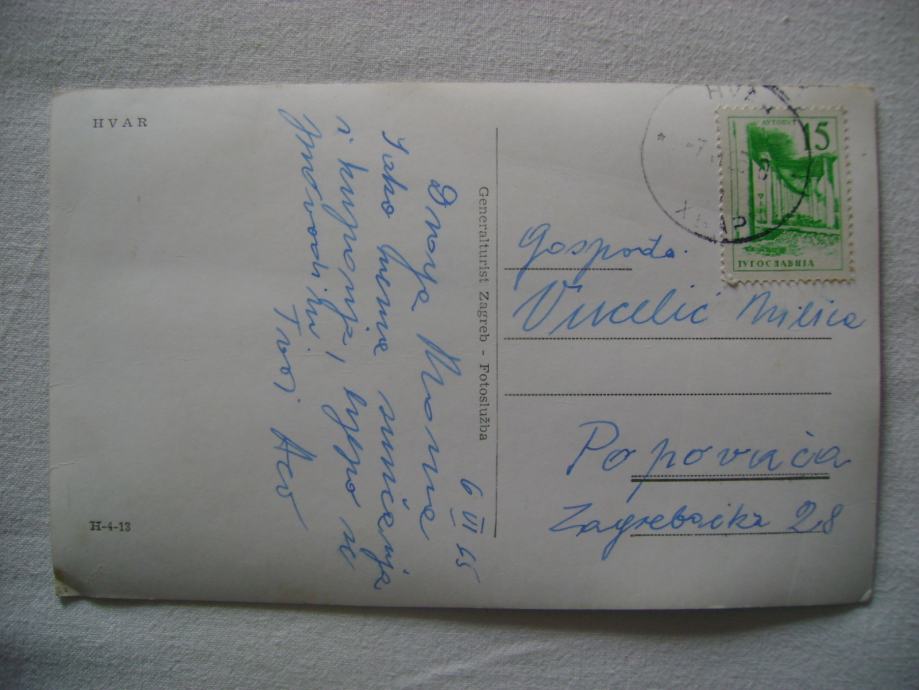 HVAR
6 VI 65
Draga Mama
Iako nema sunčanja
i kupanja, lijepo se
provodim.
Tvoj Aco
H-4-13
Generalturist Zagreb - Fotoslužba
HVAR
ХВАР
AVTOPUT
15
ЈУГОСЛАВИЈА
Gospođa
Vucelić Milica
Popovača
Zagrebačka 28